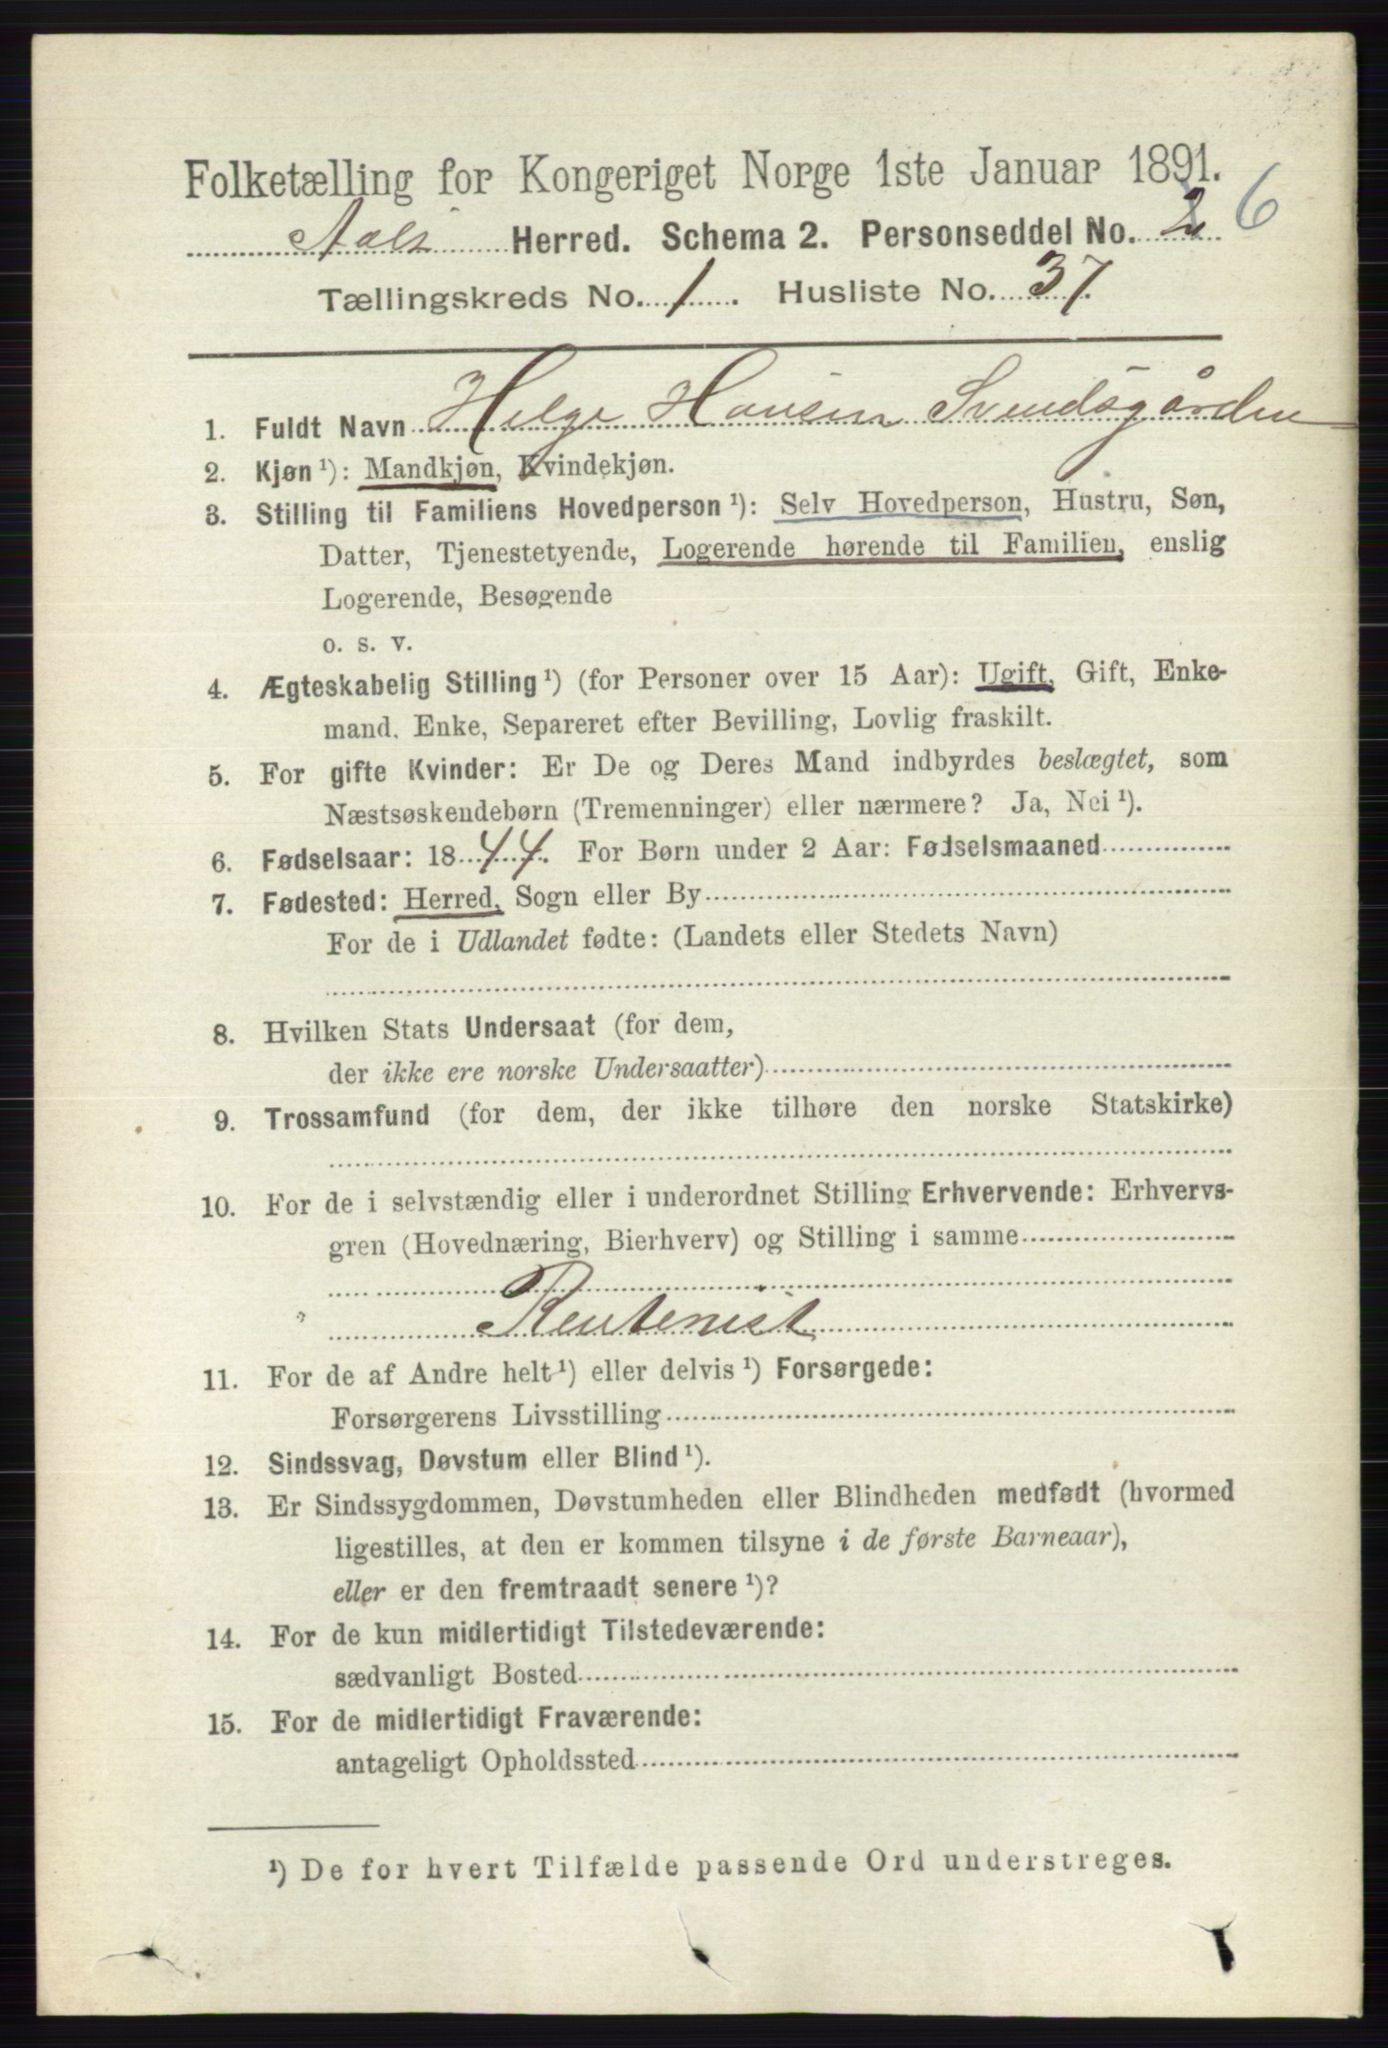 Folketælling for Kongeriget Norge 1ste Januar 1891.
Aals Herred. Schema 2. Personseddel No. 2 6
Tællingskreds No. 1. Husliste No. 37.
1. Fuldt Navn Helge Hansen Svendsgården
2. Kjøn ¹): Mandkjøn, Kvindekjøn.
3. Stilling til Familiens Hovedperson ¹): Selv Hovedperson, Hustru, Søn,
Datter, Tjenestetyende, Logerende hørende til Familien, enslig
Logerende, Besøgende
o. s. v.
4. Ægteskabelig Stilling ¹) (for Personer over 15 Aar): Ugift, Gift, Enke-
mand. Enke, Separeret efter Bevilling, Lovlig fraskilt.
5. For gifte Kvinder: Er De og Deres Mand indbyrdes beslægtet, som
Næstsøskendebørn (Tremenninger) eller nærmere? Ja, Nei ¹).
6. Fødselsaar: 1844. For Børn under 2 Aar: Fødselsmaaned
7. Fødested: Herred, Sogn eller By
For de i Udlandet fødte: (Landets eller Stedets Navn)
8. Hvilken Stats Undersaat (for dem,
der ikke ere norske Undersaatter)
9. Trossamfund (for dem, der ikke tilhøre den norske Statskirke)
10. For de i selvstændig eller i underordnet Stilling Erhvervende: Erhvervs-
gren (Hovednæring, Bierhverv) og Stilling i samme
Rentenist
11. For de af Andre helt ¹) eller delvis ¹) Forsørgede:
Forsørgerens Livsstilling
12. Sindssvag, Døvstum eller Blind ¹).
13. Er Sindssygdommen, Døvstumheden eller Blindheden medfødt (hvormed
ligestilles, at den er kommen tilsyne i de første Barneaar),
eller er den fremtraadt senere ¹)?
14. For de kun midlertidigt Tilstedeværende:
sædvanligt Bosted
15. For de midlertidigt Fraværende:
antageligt Opholdssted
¹) De for hvert Tilfælde passende Ord understreges.